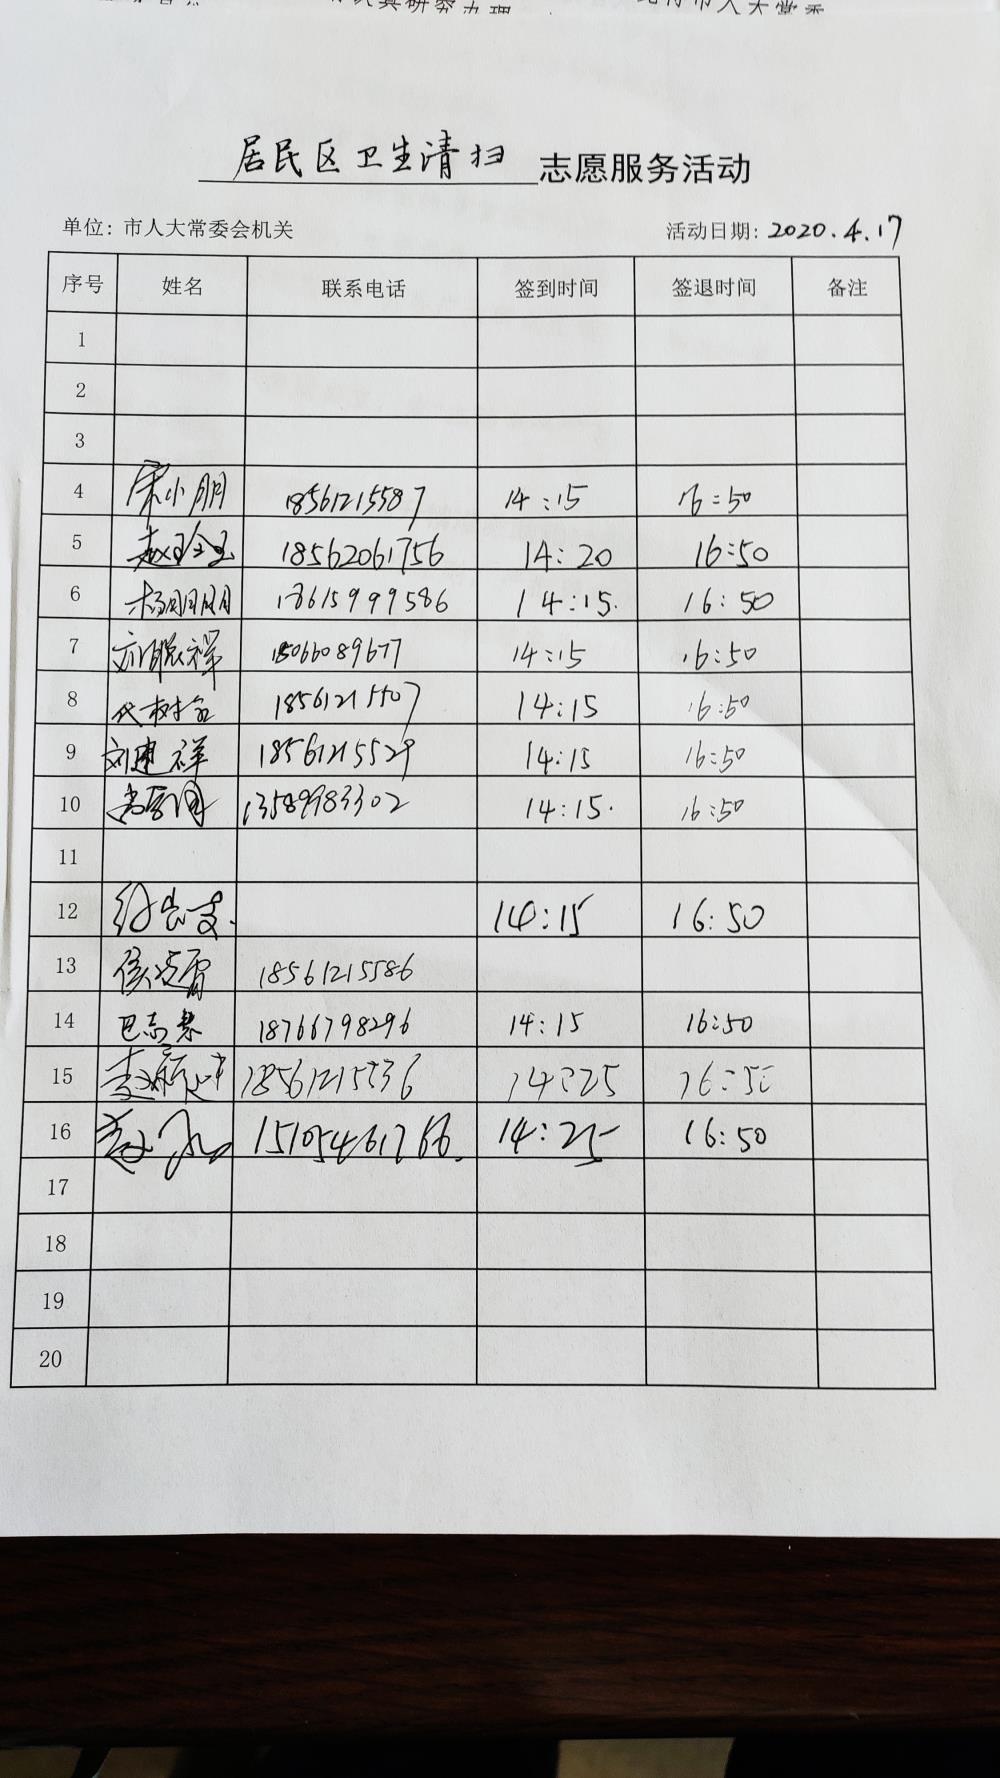 居民区卫生清扫 志愿服务活动
单位：市人大常委会机关 活动日期：2020.4.17
序号 姓名 联系电话 签到时间 签退时间 备注
1
2
3
4 宋小朋 18561215587 14:15 16:50
5 18562061756 14:20 16:50
6 杨朋朋 18615999586 14:15. 16:50
7 14:15 16:50
8 14:15 16:50
9 刘建祥 18561215529 14:15 16:50
10 13589983302 14:15. 16:50
11
12 14:15 16:50
13 18561215586
14 18766798296 14:15 16:50
15 18561215536 14:25 16:50
16 14:25 16:50
17
18
19
20